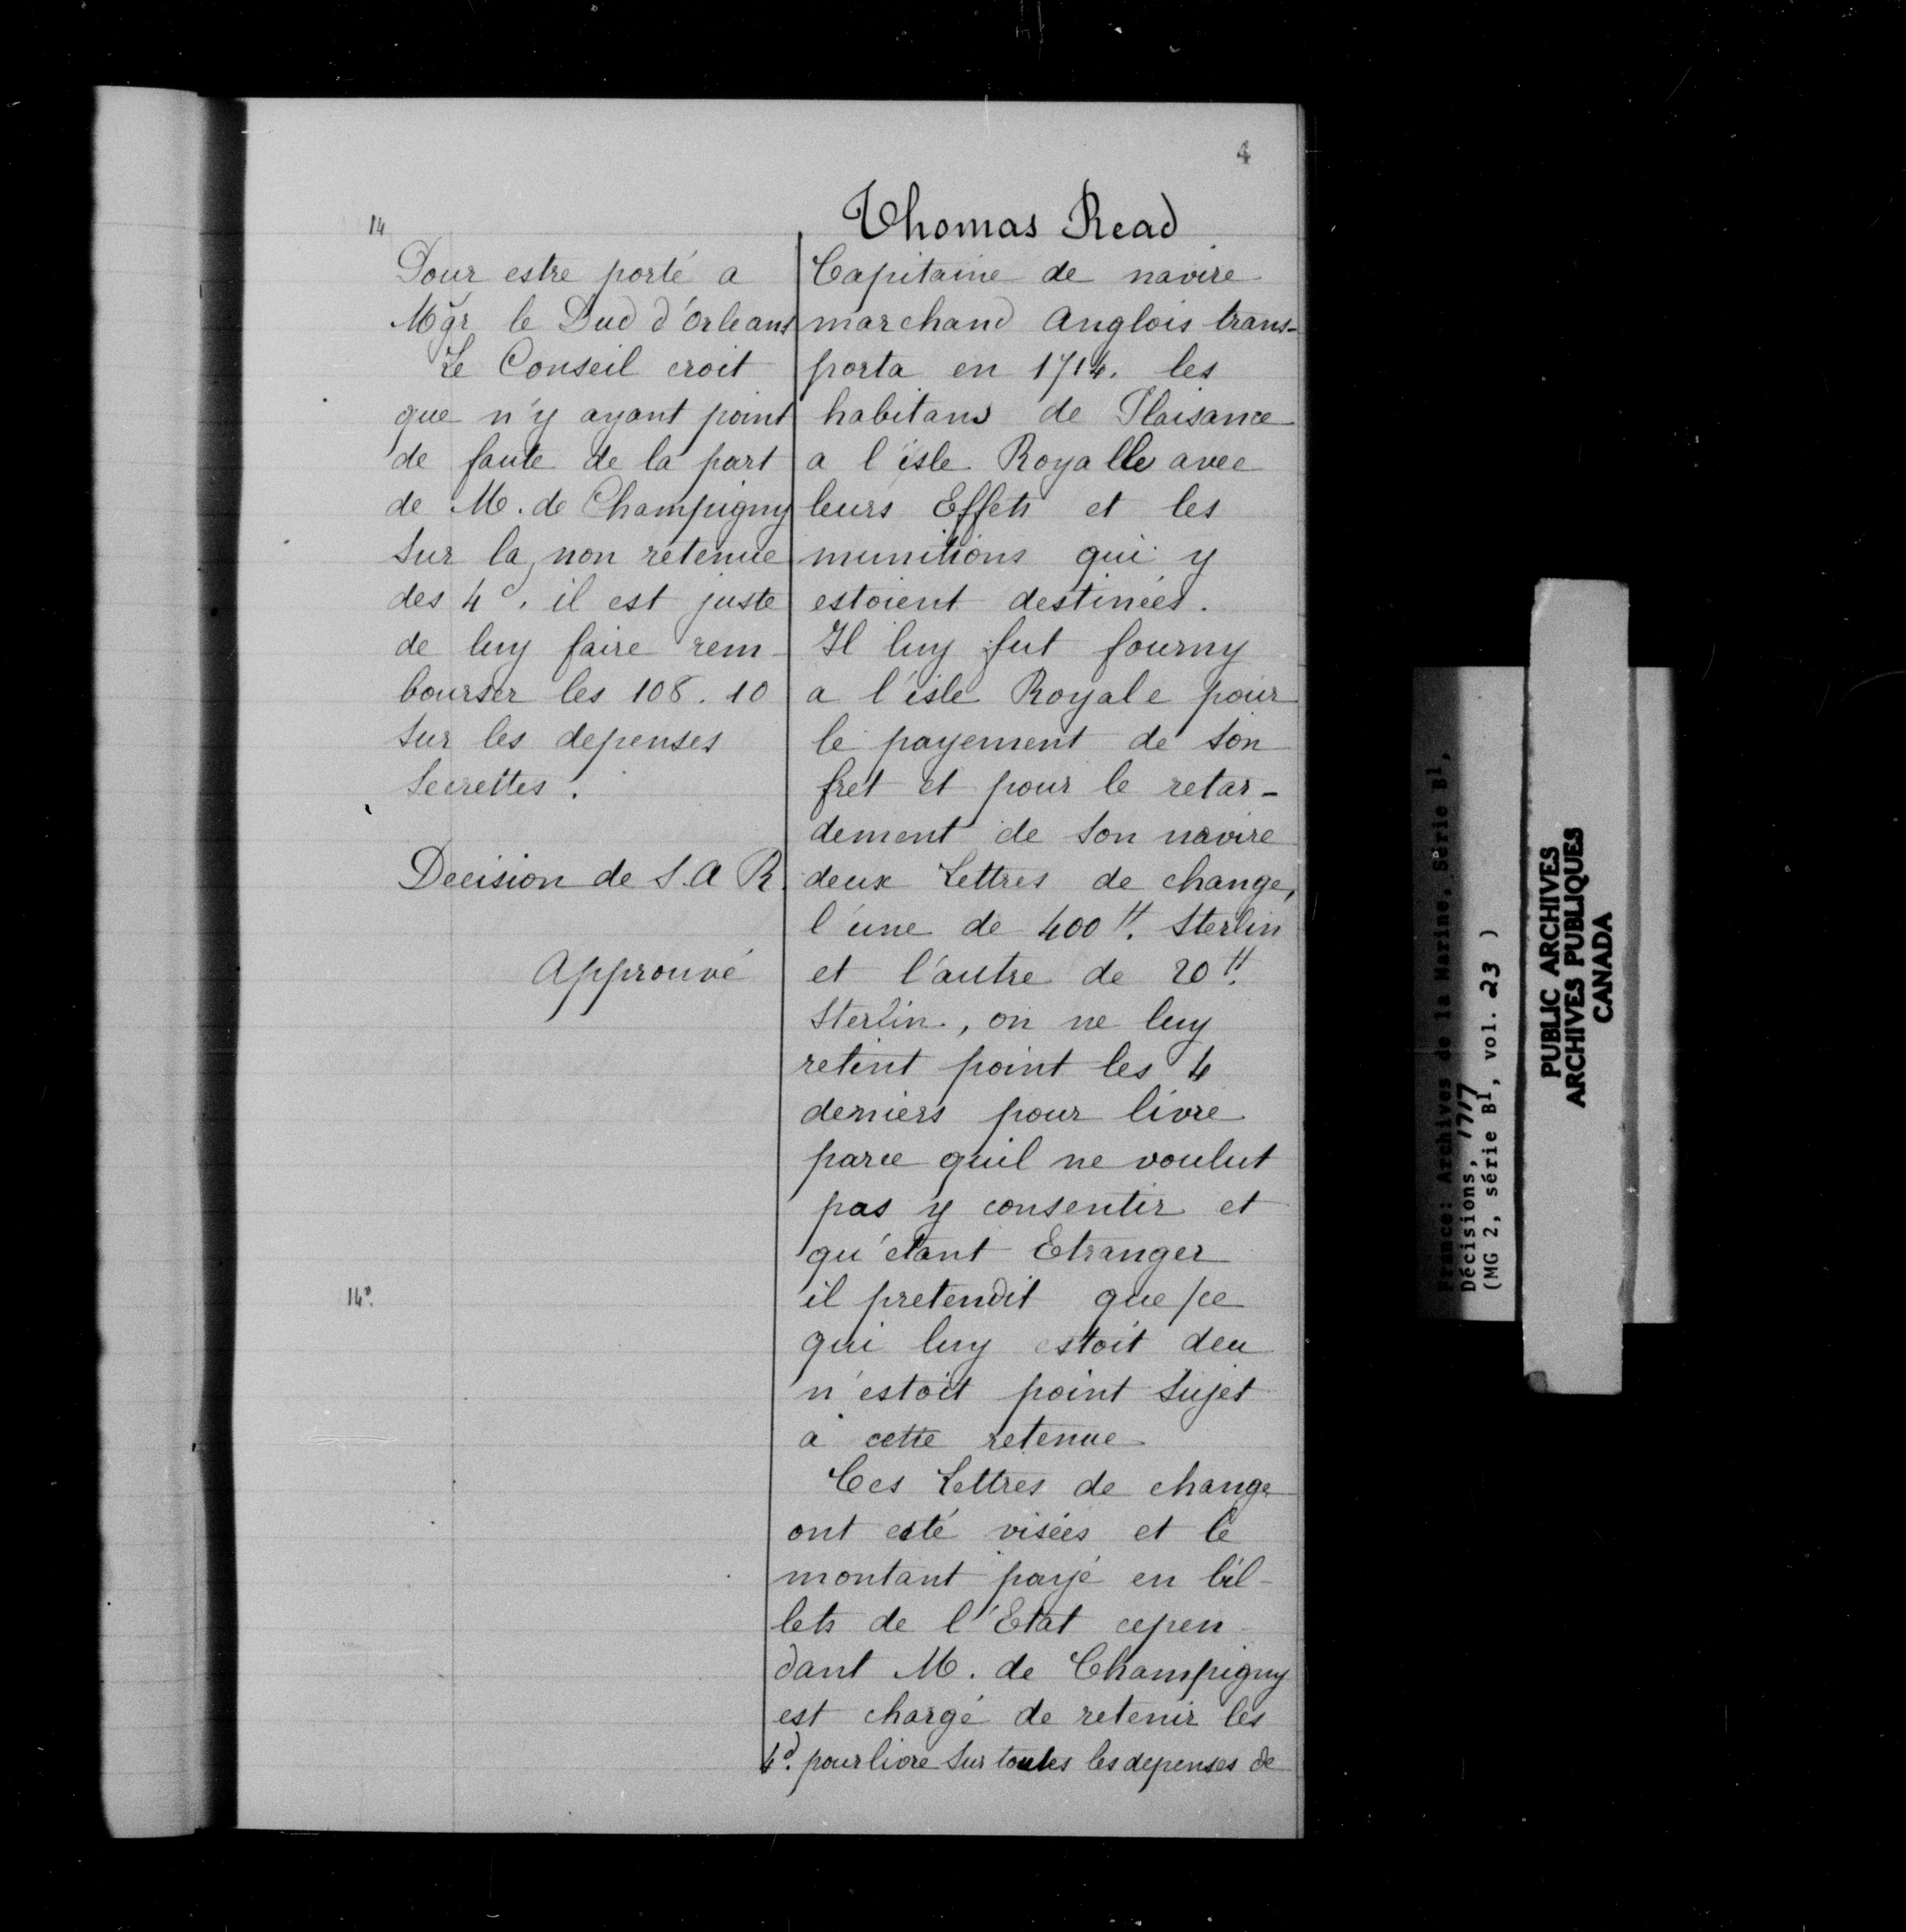 4
14
Thomas Read
Pour estre porté a
Mgr le Duc d'Orleans
Le Conseil croit
que n'y ayant point
de faute de la part
de M. de Champigny
sur la non retenue
des 4d. il est juste
de luy faire rem-
bourser les 108. 10
sur les depenses
secrettes.
Decision de S. A R.
Approuvé
Capitaine de navire
marchand Anglois trans-
porta en 1714. les
habitans de Plaisance
a l'isle Royalle avec
leurs Effets et les
munitions qui y
estoient destinées.
Il luy fut fourny
a l'isle Royale pour
le payement de son
fret et pour le retar-
dement de son navire
deux Lettres de change,
l'une de 400 ₶. Sterlin
et l'autre de 20 ₶.
Sterlin, on ne luy
retint point les 4
deniers pour livre
parce quil ne voulut
pas y consentir et
qu'etant Etranger
14º.
il pretendit que/ce
qui luy estoit deu
n'estoit point sujet
à cette retenue
Ces Lettres de change
ont esté visées et le
montant payé en bil-
lets de l'Etat cepen-
dant M. de Champigny
est chargé de retenir les
4d. pour livre sur toutes les depenses de
France: Archives de la Marine, Série B1,
Décisions, 1717
(MG 2, série B1, vol. 23 )
PUBLIC ARCHIVES
ARCHIVES PUBLIQUES
CANADA